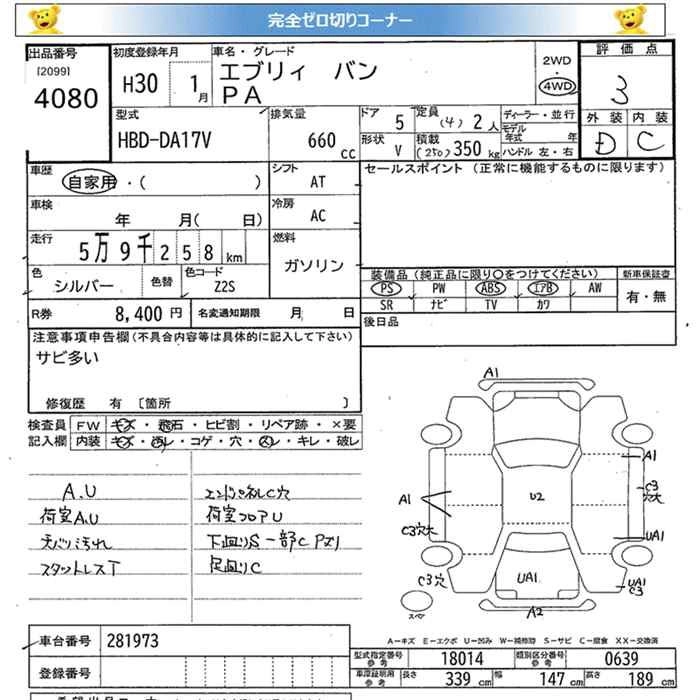 完全ゼロ切りコーナー
出品番号 初度登録年月 車名・グレード 評価点
[2099] 4080 H30 1月 エブリィ バン 2WD 4WD 3
PA
型式 排気量 ドア 定員 ディーラー・並行 外装 内装
HBD-DA17V 660cc 5 (4) 2人 モデル年式 年 D C
形状 V 積載 (250) 350kg ハンドル 左・右
車歴 シフト セールスポイント (正常に機能するものに限ります)
自家用・( ) AT
車検 冷房
年 月( 日) AC
走行 燃料
5万9千258km ガソリン
色 色替 色コード 装備品(純正品に限り○をつけてください) 新車保証書
シルバー Z2S PS PW ABS エアB AW 有・無
SR ナビ TV カワ
R券 8,400円 名変通知期限 月 日 後日品
注意事項申告欄(不具合内容等は具体的に記入して下さい)
サビ多い
修復歴 有 〔箇所 〕
検査員 FW キズ・飛石・ヒビ割・リペア跡・×要
記入欄 内装 キズ・汚レ・コゲ・穴・スレ・キレ・破レ
A.U エンドパネルC穴
荷室A,U 荷室フロアU
天バリ汚れ 下廻りS一部C
スタットレスT 足廻りC
A1
A1
A1
C3穴大
C3穴大
U2
UA1
C3穴
UA1
UA1
C3
スペア
A2
A-キズ E-エクボ U-凹み W-補修跡 S-サビ C-腐食 XX-交換済
車台番号 281973
型式指定番号 参考 18014 類別区分番号 参考 0639
登録番号
車庫証明用 参考 長さ 339cm 幅 147cm 高さ 189cm